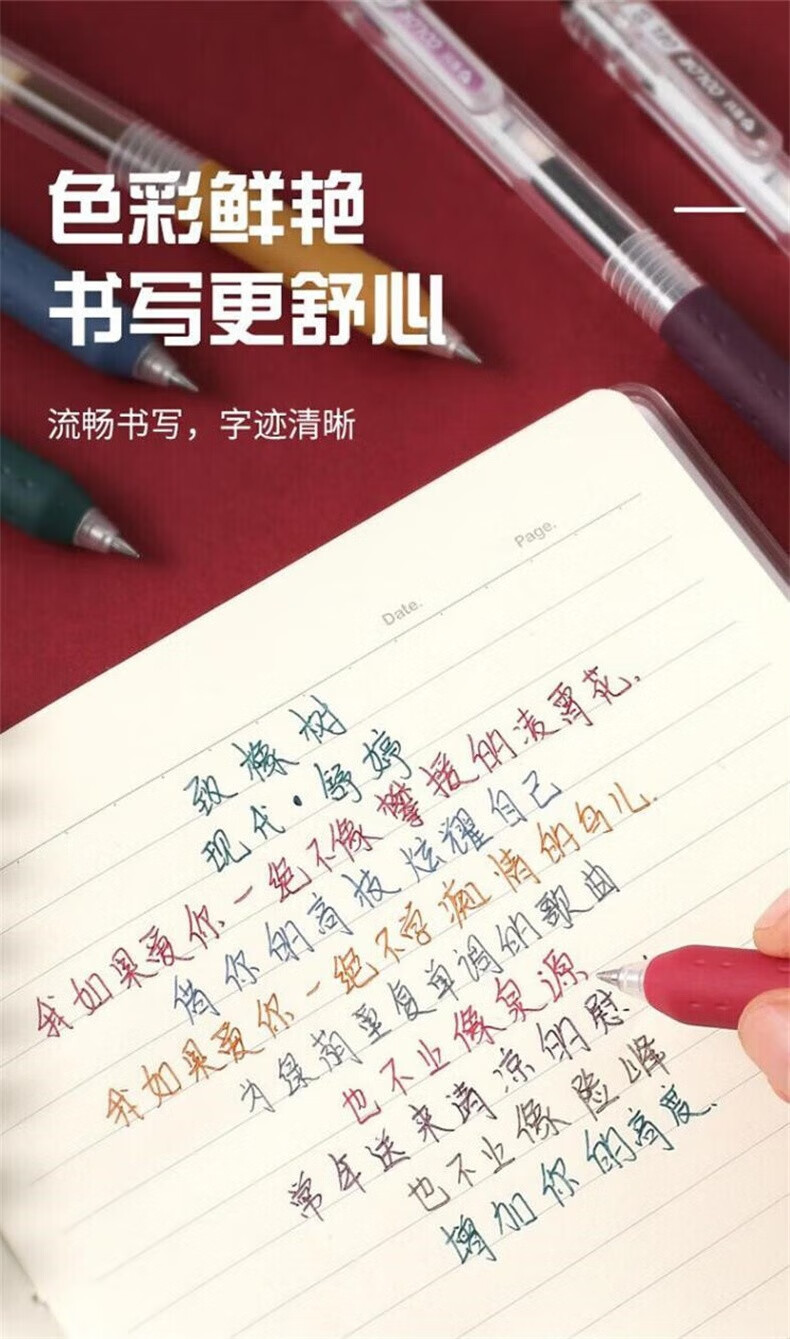 色彩鲜艳
书写更舒心
流畅书写，字迹清晰
Page.
Date.
致橡树
现代·舒婷
我如果爱你－绝不像攀援的凌霄花，
借你的高枝炫耀自己
我如果爱你－绝不学痴情的鸟儿.
为绿荫重复单调的歌曲
也不止像泉源
常年送来清凉的慰
也不止像险峰
增加你的高度、